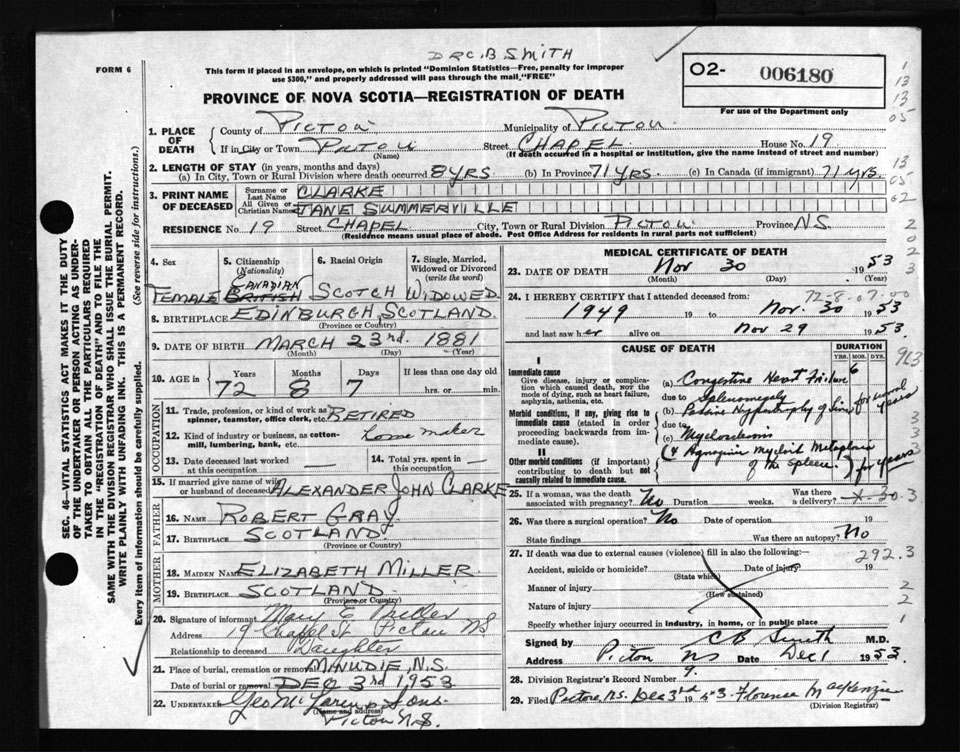 DR C. B SMITH
FORM 6
This form if placed in an envelope, on which is printed "Dominion Statistics—Free, penalty for improper
use $300," and properly addressed will pass through the mail, "FREE"
O2- 006180
For use of the Department only
PROVINCE OF NOVA SCOTIA—REGISTRATION OF DEATH
1. PLACE OF DEATH
County of PICTOU Municipality of PICTOU
If in City or Town PICTOU Street CHAPEL House No. 19
(Name) (If death occurred in a hospital or institution, give the name instead of street and number)
2. LENGTH OF STAY (in years, months and days)
(a) In City, Town or Rural Division where death occurred 8 YRS (b) In Province 71 YRS. (c) In Canada (if immigrant) 71 yrs.
3. PRINT NAME OF DECEASED
Surname or Last Name CLARKE
All Given or Christian Names JANE SUMMERVILLE
RESIDENCE No. 19 Street CHAPEL City, Town or Rural Division PICTOU Province N.S.
(Residence means usual place of abode. Post Office Address for residents in rural parts not sufficient)
4. Sex 5. Citizenship (Nationality) 6. Racial Origin 7. Single, Married, Widowed or Divorced (write the word)
CANADIAN
FEMALE BRITISH SCOTCH WIDOWED
8. BIRTHPLACE EDINBURGH, SCOTLAND.
(Province or Country)
9. DATE OF BIRTH MARCH 23rd. 1881
(Month) (Day) (Year)
10. AGE in Years Months Days If less than one day old
72 8 7 hrs. or min.
OCCUPATION
11. Trade, profession, or kind of work as spinner, teamster, office clerk, etc. RETIRED
12. Kind of industry or business, as cotton-mill, lumbering, bank, etc. Home maker
13. Date deceased last worked at this occupation —
14. Total yrs. spent in this occupation —
15. If married give name of wife or husband of deceased ALEXANDER JOHN CLARKE
FATHER
16. NAME ROBERT GRAY
17. BIRTHPLACE SCOTLAND
(Province or Country)
MOTHER
18. MAIDEN NAME ELIZABETH MILLER
19. BIRTHPLACE SCOTLAND.
(Province or Country)
20. Signature of informant Mary E Miller
Address 19 Chapel St Pictou NS
Relationship to deceased Daughter
21. Place of burial, cremation or removal MINUDIE, N.S.
Date of burial or removal DEC 3rd 1953
22. UNDERTAKER Geo McLaren & Sons
(Name and address)
Pictou N.S.
MEDICAL CERTIFICATE OF DEATH
23. DATE OF DEATH Nov 30 1953
(Month) (Day) (Year)
72-8-07-00
24. I HEREBY CERTIFY that I attended deceased from:
1949 19 to Nov. 30 1953
and last saw her alive on Nov 29 1953.
CAUSE OF DEATH DURATION
YRS. MOS. DYS.
I
Immediate cause
Give disease, injury or complication which caused death, not the mode of dying, such as heart failure, asphyxia, asthenia, etc.
(a) Congestive Heart Failure 6
due to Splenomegaly
Morbid conditions, if any, giving rise to immediate cause (stated in order proceeding backwards from immediate cause).
(b) Hypertrophy of for several years
due to
(c)
II
Other morbid conditions (if important) contributing to death but not causally related to immediate cause.
( & Agnogenic Myeloid Metaplasia
of the Spleen ) for years
25. If a woman, was the death associated with pregnancy? No Duration weeks. Was there a delivery?
26. Was there a surgical operation? No Date of operation 19
State findings Was there an autopsy? No
27. If death was due to external causes (violence) fill in also the following:—
292.3
Accident, suicide or homicide? Date of injury 19
(State which)
Manner of injury
(How sustained)
Nature of injury
Specify whether injury occurred in industry, in home, or in public place
Signed by C B Smith M.D.
Address Pictou NS Date Dec 1 1953.
28. Division Registrar's Record Number 9.
29. Filed Pictou N.S. Dec 3rd 1953 Florence MacKenzie
(Division Registrar)
SEC. 46—VITAL STATISTICS ACT MAKES IT THE DUTY
OF THE UNDERTAKER OR PERSON ACTING AS UNDER-
TAKER TO OBTAIN ALL THE PARTICULARS REQUIRED
IN THE "REGISTRATION OF DEATH" AND TO FILE THE
SAME WITH THE DIVISION REGISTRAR WHO SHALL ISSUE THE BURIAL PERMIT.
WRITE PLAINLY WITH UNFADING INK. THIS IS A PERMANENT RECORD.
Every item of information should be carefully supplied. (See reverse side for instructions.)